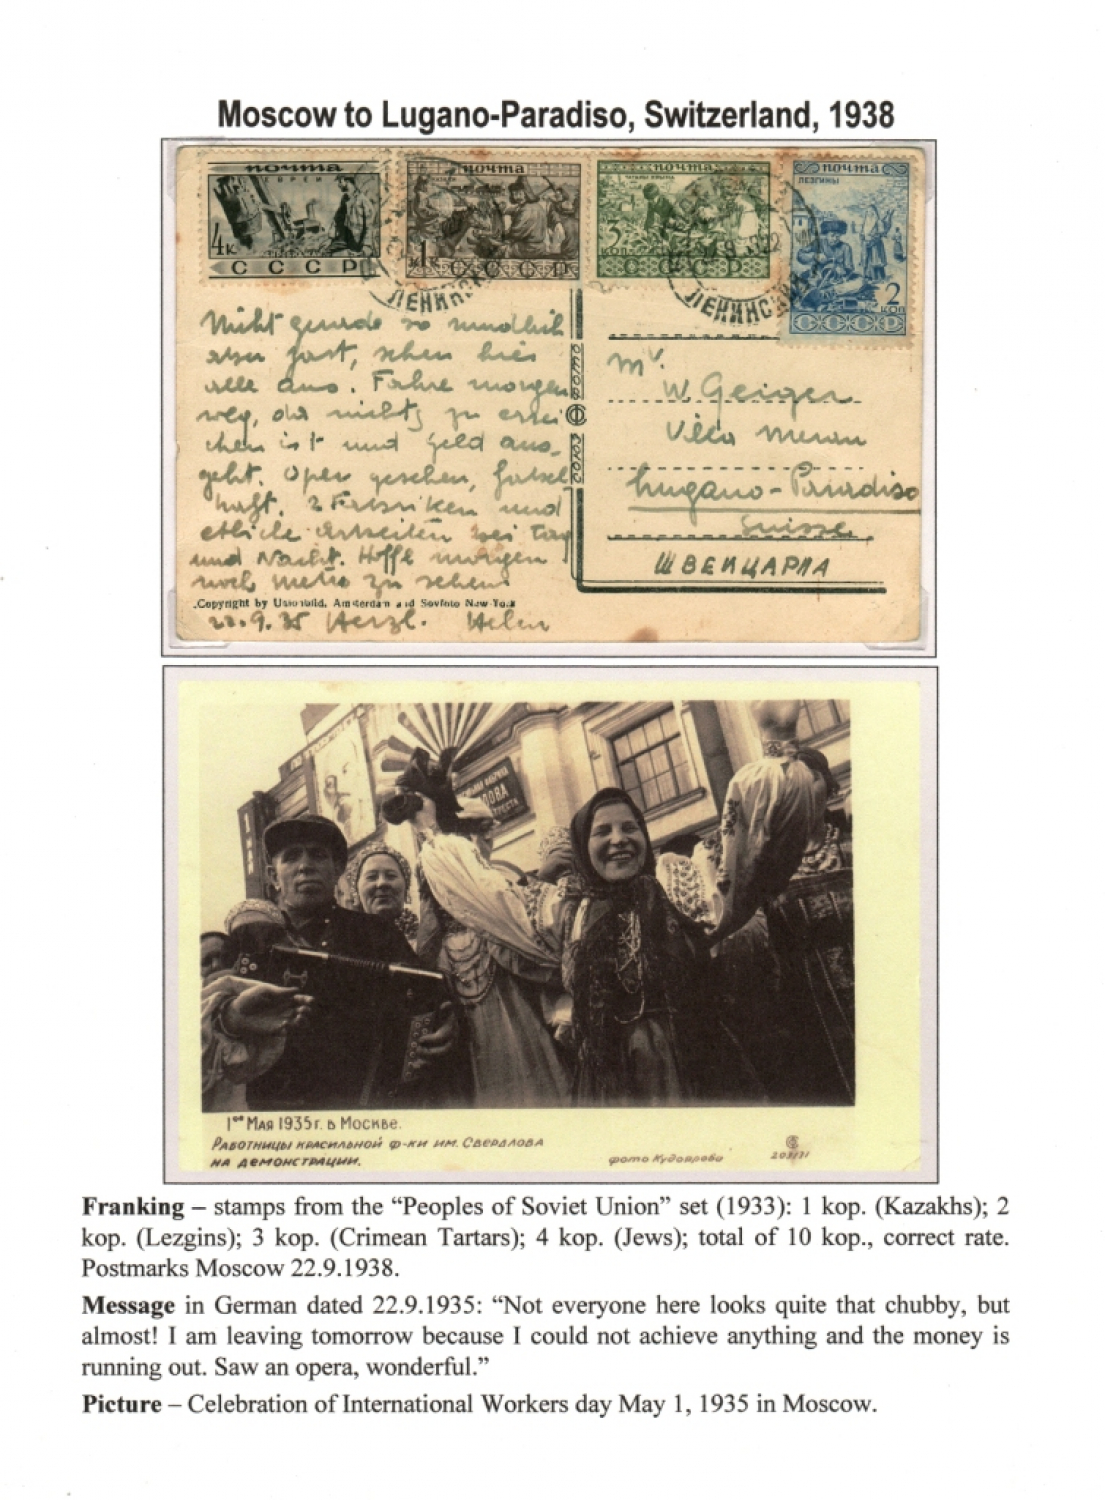 Moscow to Lugano-Paradiso, Switzerland, 1938
почта
ЕВРЕИ
4к
СССР
почта
1к
СССР
почта
ТАТАРЫ КРЫМА
3
коп
СССР
почта
ЛЕЗГИНЫ
2
коп
СССР
ЛЕНИНСК
ЛЕНИНСКИЙ
Nicht gerade so rundlich
aber fast, sehen hier
alle aus. Fahre morgen
weg, da nichts zu errei
chen ist und Geld aus-
geht. Oper gesehen, fabel
haft. 2 Fabriken und
etliche Arbeiten bei Tag
und Nacht. Hoffe morgen
noch Metro zu sehen
Copyright by Unionbild, Amsterdam and Sovfoto New-York
22.9.35 Herzl. Helen
Mr.
W. Geiger
Villa Meran
Lugano-Paradiso
Suisse
ШВЕЙЦАРИА
1ое Мая 1935г. в Москве.
Работницы красильной ф-ки им. Свердлова
на демонстрации.
фото Кудоярова
203131
Franking – stamps from the “Peoples of Soviet Union” set (1933): 1 kop. (Kazakhs); 2
kop. (Lezgins); 3 kop. (Crimean Tartars); 4 kop. (Jews); total of 10 kop., correct rate.
Postmarks Moscow 22.9.1938.
Message in German dated 22.9.1935: “Not everyone here looks quite that chubby, but
almost! I am leaving tomorrow because I could not achieve anything and the money is
running out. Saw an opera, wonderful.”
Picture – Celebration of International Workers day May 1, 1935 in Moscow.